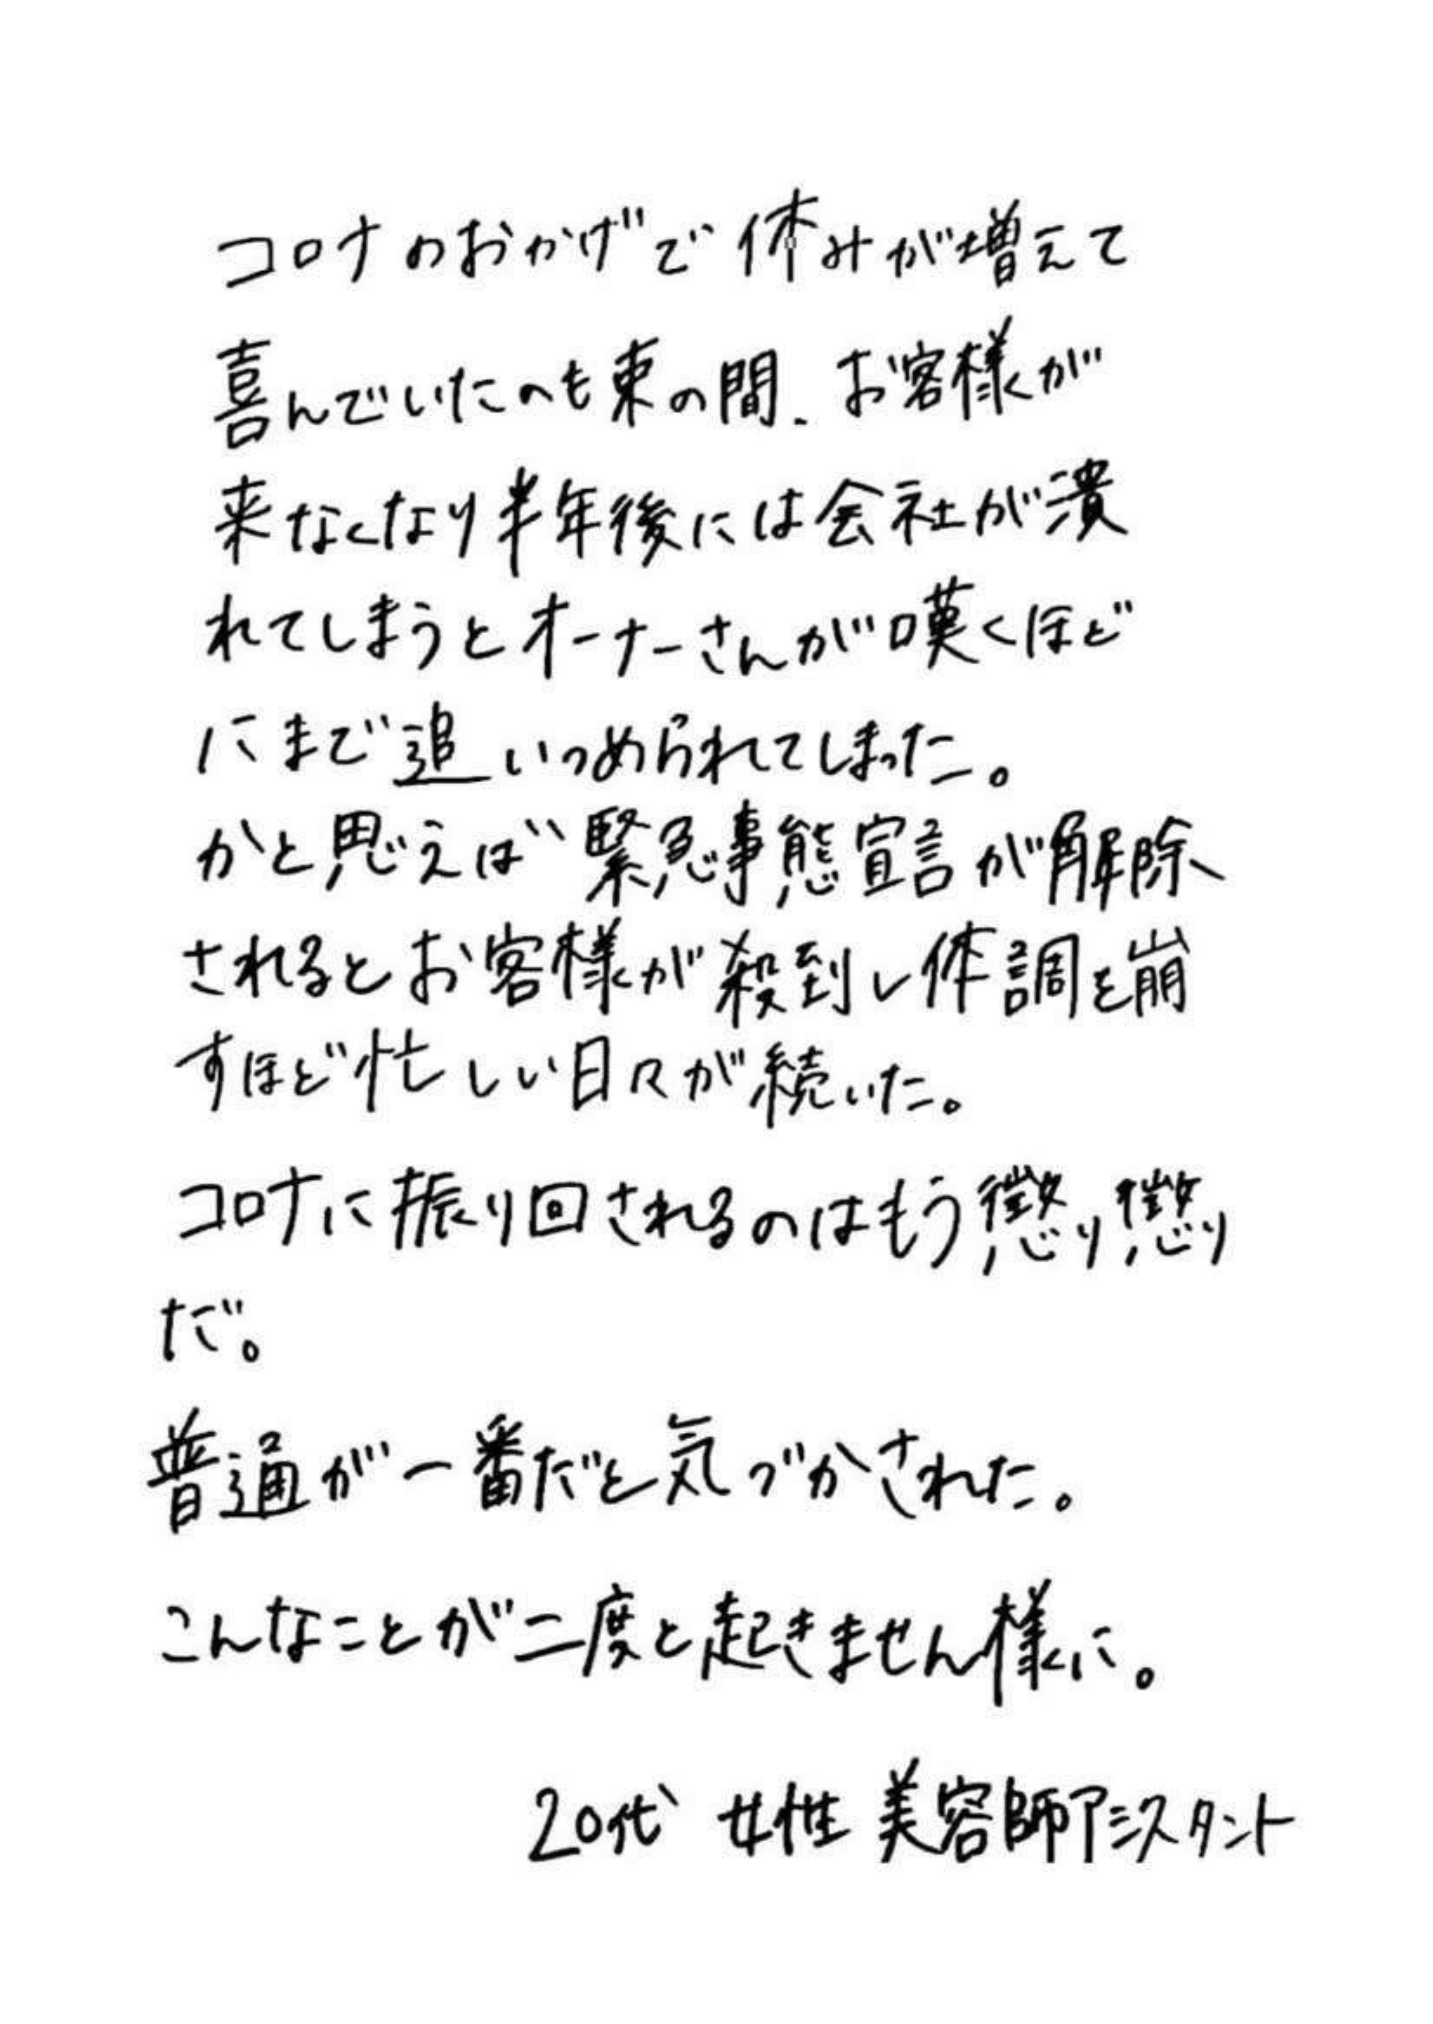 コロナのおかげで休みが増えて
喜んでいたのも束の間、お客様が
来なくなり半年後には会社が潰
れてしまうとオーナーさんが嘆くほど
にまで追いつめられてしまった。
かと思えば緊急事態宣言が解除
されるとお客様が殺到し体調を崩
すほど忙しい日々が続いた。
コロナに振り回されるのはもう懲り懲り
だ。
普通が一番だと気づかされた。
こんなことが二度と起きません様に。
20代 女性 美容師アシスタント